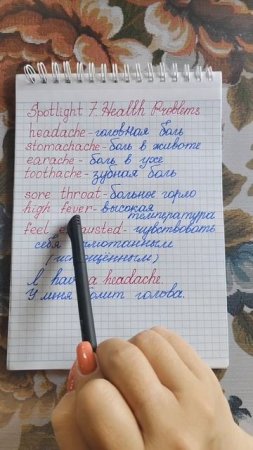 Spotlight 7 Health Problems
headache - головная боль
stomachache - боль в животе
earache - боль в ухе
toothache - зубная боль
sore throat - больное горло
high fever - высокая
температура
feel - чувствовать
себя
I have a headache.
У меня голова.